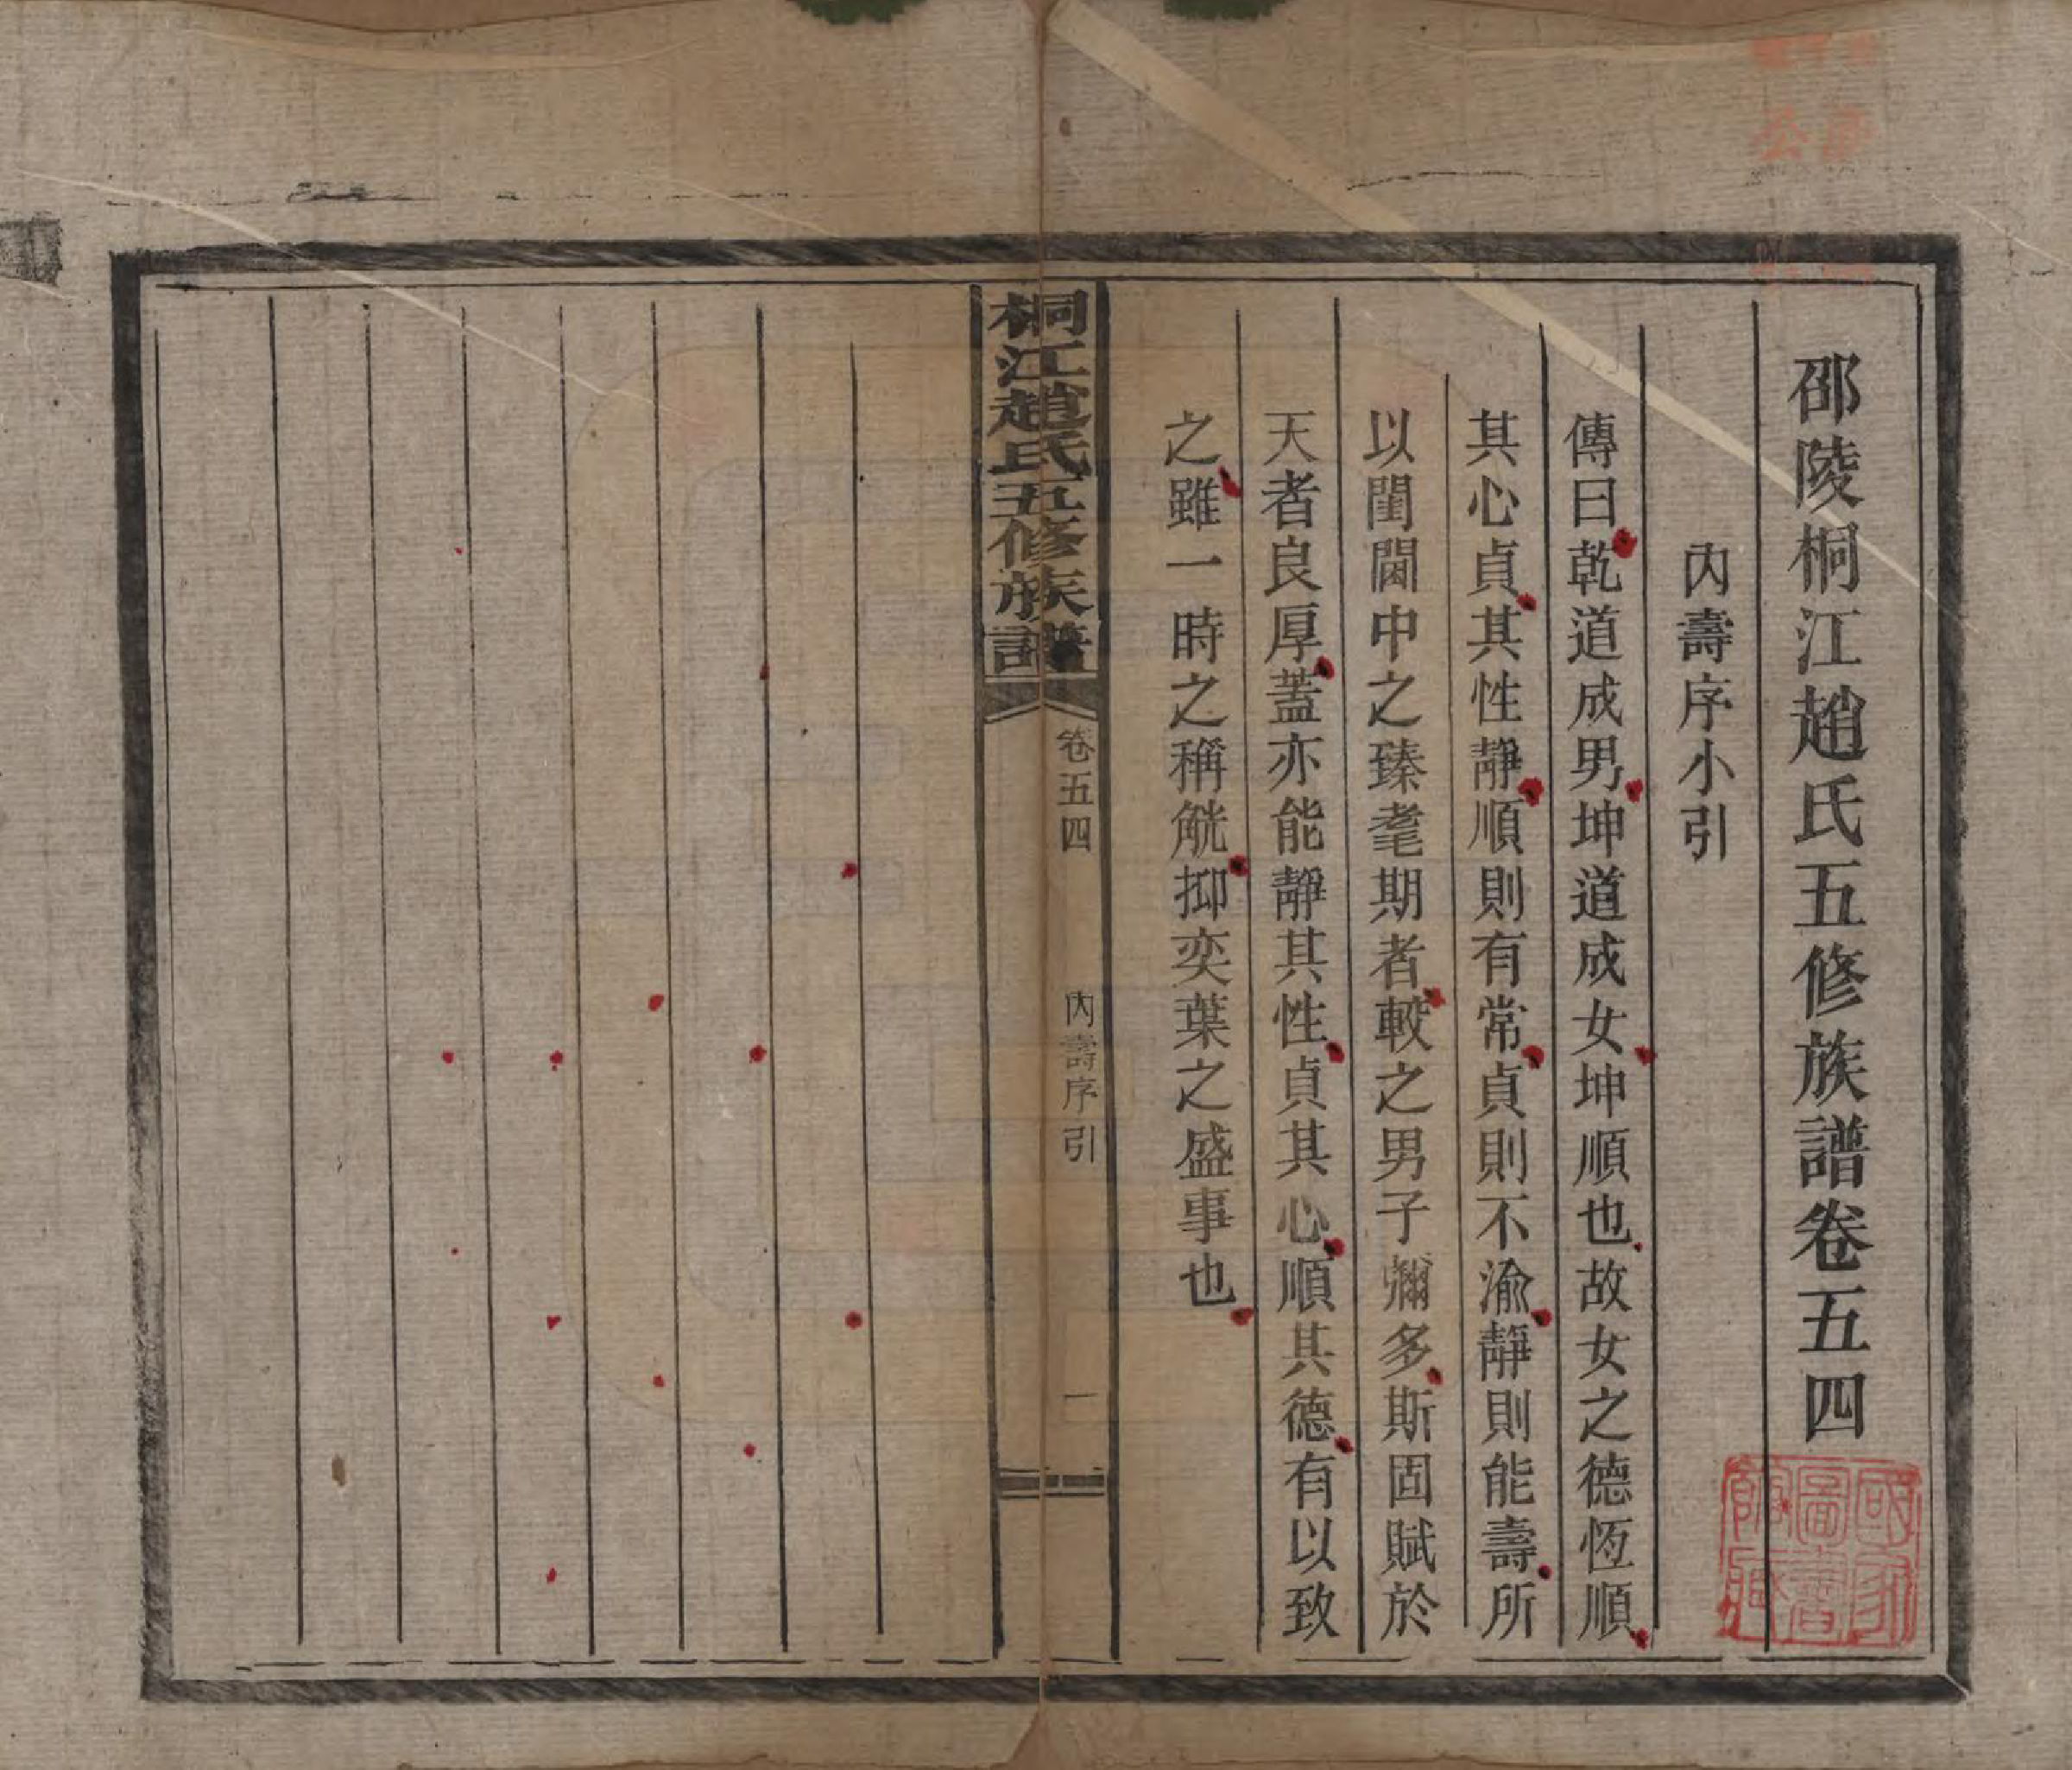 邵陵桐江趙氏五修族譜卷五四
內壽序小引
傳曰乾道成男坤道成女坤順也故女之德恆順
其心貞其性靜順則有常貞則不渝靜則能壽所
以閨閫中之臻耄期者較之男子彌多斯固賦於
天者良厚蓋亦能靜其性貞其心順其德有以致
之雖一時之稱觥抑奕葉之盛事也
桐江趙氏五修族譜
卷五四
內壽序引
一
國家圖書館藏